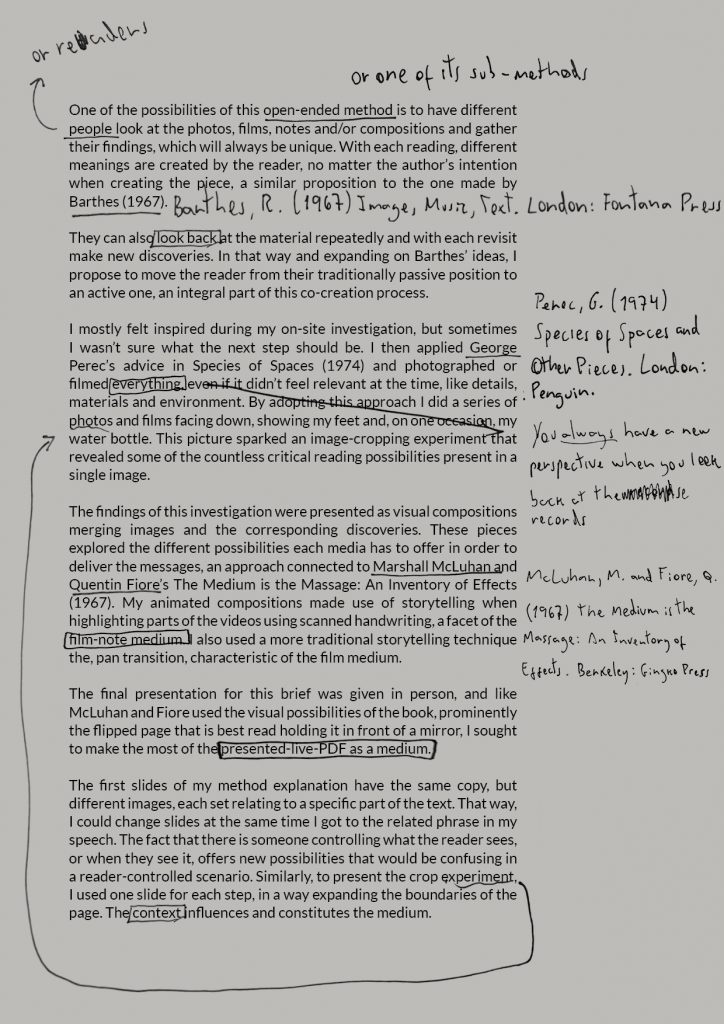 or readers
or one of its sub-methods
One of the possibilities of this open-ended method is to have different
people look at the photos, films, notes and/or compositions and gather
their findings, which will always be unique. With each reading, different
meanings are created by the reader, no matter the author's intention
when creating the piece, a similar proposition to the one made by
Barthes (1967). Barthes, R. (1967) Image, Music, Text. London: Fontana Press
They can also look back at the material repeatedly and with each revisit
make new discoveries. In that way and expanding on Barthes' ideas, I
propose to move the reader from their traditionally passive position to
an active one, an integral part of this co-creation process.
I mostly felt inspired during my on-site investigation, but sometimes
I wasn't sure what the next step should be. I then applied George
Perec's advice in Species of Spaces (1974) and photographed or
filmed everything, even if it didn't feel relevant at the time, like details,
materials and environment. By adopting this approach I did a series of
photos and films facing down, showing my feet and, on one occasion, my
water bottle. This picture sparked an image-cropping experiment that
revealed some of the countless critical reading possibilities present in a
single image.
Perec, G. (1974)
Species of Spaces and
Other Pieces. London:
Penguin.
You always have a new
perspective when you look
back at these
records
The findings of this investigation were presented as visual compositions
merging images and the corresponding discoveries. These pieces
explored the different possibilities each media has to offer in order to
deliver the messages, an approach connected to Marshall McLuhan and
Quentin Fiore's The Medium is the Massage: An Inventory of Effects
(1967). My animated compositions made use of storytelling when
highlighting parts of the videos using scanned handwriting, a facet of the
film-note medium. I also used a more traditional storytelling technique
the, pan transition, characteristic of the film medium.
McLuhan, M. and Fiore, Q.
(1967) The Medium is the
Massage: An Inventory of
Effects. Berkeley: Gingko Press
The final presentation for this brief was given in person, and like
McLuhan and Fiore used the visual possibilities of the book, prominently
the flipped page that is best read holding it in front of a mirror, I sought
to make the most of the presented-live-PDF as a medium.
The first slides of my method explanation have the same copy, but
different images, each set relating to a specific part of the text. That way,
I could change slides at the same time I got to the related phrase in my
speech. The fact that there is someone controlling what the reader sees,
or when they see it, offers new possibilities that would be confusing in
a reader-controlled scenario. Similarly, to present the crop experiment,
I used one slide for each step, in a way expanding the boundaries of the
page. The context influences and constitutes the medium.